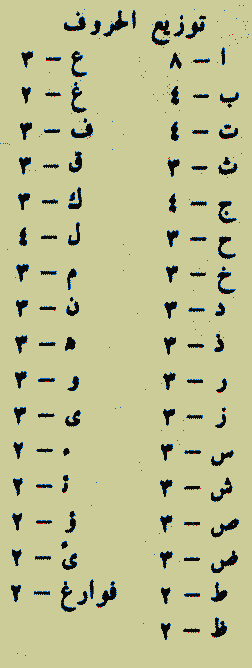 توزيع الحروف
ا – ٨
ب – ٤
ت – ٤
ث – ٣
ج – ٤
ح – ٣
خ – ٣
د – ٣
ذ – ٣
ر – ٣
ز – ٣
س – ٣
ش – ٣
ص – ٣
ض – ٣
ط – ٢
ظ – ٢
ع – ٣
غ – ٢
ف – ٣
ق – ٣
ك – ٣
ل – ٤
م – ٣
ن – ٣
ه – ٣
و – ٣
ى – ٣
ء – ٢
أ – ٢
ؤ – ٢
ئ – ٢
فوارغ – ٢